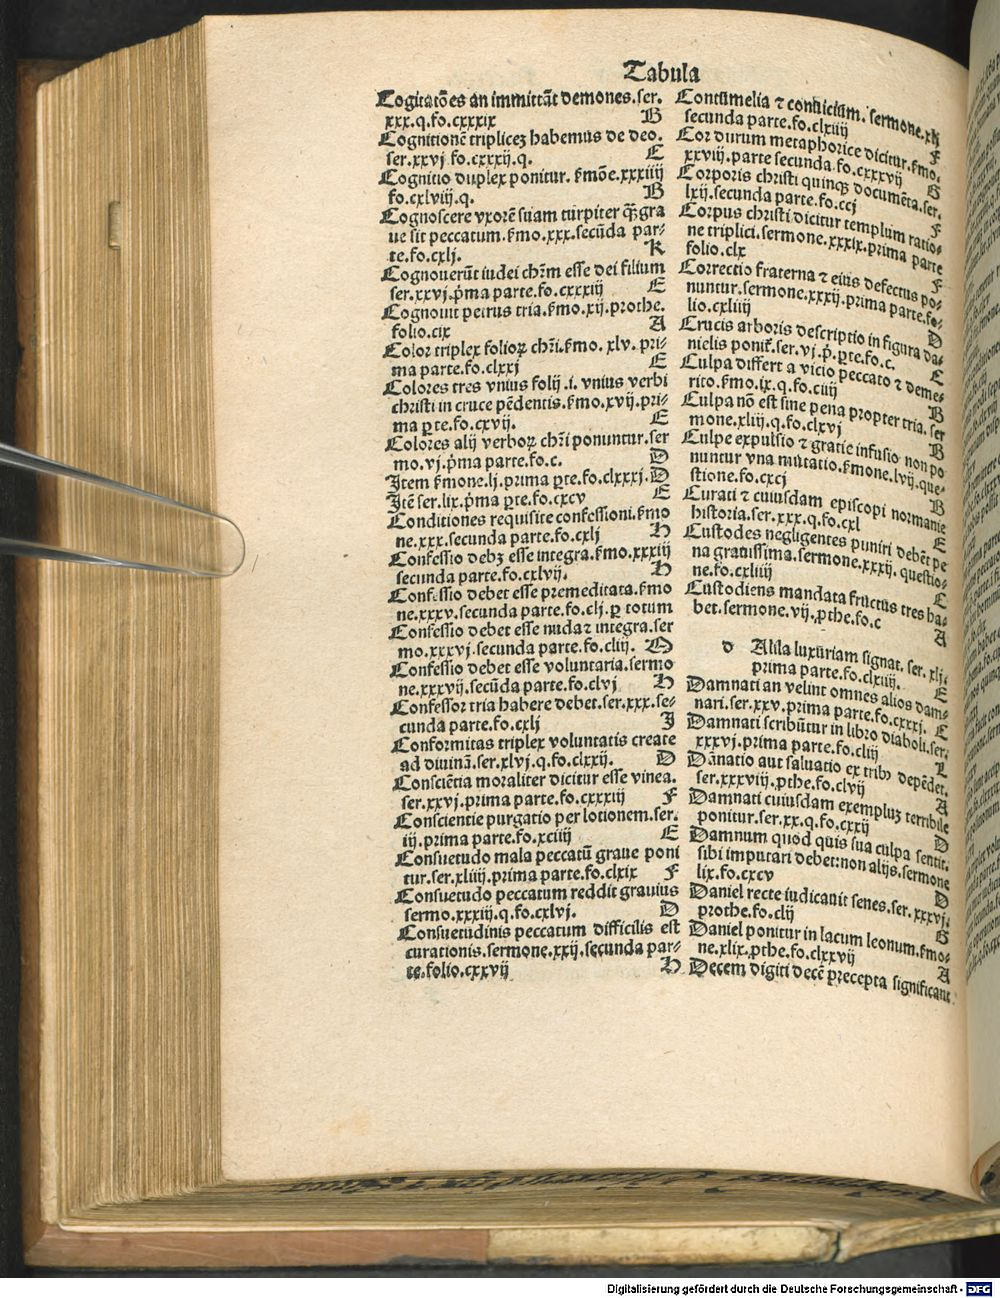 Tabula
Cogitatōes an immittāt demones.ser.
xxx.q.fo.cxxxix B
Cognitionē triplicez habemus de deo.
ser.xxvj.fo.cxxxij.q. E
Cognitio duplex ponitur. ẜmōe.xxxiiij
fo.cxlviij.q. B
Cognoscere vxorē suam turpiter qȝ gra
ue sit peccatum.ẜmo.xxx.secūda par⸗
te.fo.cxlj. K
Cognouerūt iudei chr̄m esse dei filium
ser.xxvj.p̄ma parte.fo.cxxxiij E
Cognouit petrus tria.ẜmo.xij.prothe.
folio.cix A
Color triplex folioꝝ chr̄i.ẜmo. xlv. pri⸗
ma parte.fo.clxxj E
Colores tres vnius folij .i. vnius verbi
christi in cruce pēdentis.ẜmo.xvij.pri⸗
ma ꝑte.fo.cxvij. E
Colores alij verboꝝ chr̄i ponuntur.ser
mo.vj.p̄ma parte.fo.c. D
Item ẜmone.lj.prima ꝑte.fo.clxxxj. D
Itē ser.lix.p̄ma ꝑte.fo.cxcv E
Conditiones requisite confessioni.ẜmo
ne.xxx.secunda parte.fo.cxlj H
Confessio debȝ esse integra.ẜmo.xxxiij
secunda parte.fo.cxlvij. H
Confessio debet esse premeditata.ẜmo
ne.xxxv.secunda parte.fo.clj.ꝑ totum
Confessio debet esse nuda ⁊ integra.ser
mo.xxxvj.secunda parte.fo.cliij.
Confessio debet esse voluntaria.sermo
ne.xxxvij.secūda parte.fo.clvj H
Confessor tria habere debet.ser.xxx.se⸗
cunda parte.fo.cxlj I
Conformitas triplex voluntatis create
ad diuinā.ser.xlvj.q.fo.clxxij. D
Consciētia moraliter dicitur esse vinea.
ser.xxvj.prima parte.fo.cxxxiij F
Conscientie purgatio per lotionem.ser.
iij.prima parte.fo.xciiij E
Consuetudo mala peccatū graue poni
tur.ser.xliiij.prima parte.fo.clxix F
Consuetudo peccatum reddit grauius
sermo.xxxiij.q.fo.cxlvj. D
Consuetudinis peccatum difficilis est
curationis.sermone.xxij.secunda par⸗
te.folio.cxxvij H
Contumelia ⁊ conuicium. sermone.
secunda parte.fo.clxiiij F
Cor durum metaphorice dicitur.ẜmo.
xxviij.parte secunda.fo.cxxxvij G
Corporis christi quinqȝ documēta.ser.
lxij.secunda parte.fo.ccj F
Corpus christi dicitur templum ratio⸗
ne triplici.sermone.xxxix.prima parte
folio.clx F
Correctio fraterna ⁊ eius defectus po⸗
nuntur.sermone.xxxij.prima parte.fo⸗
lio.cxliiij D
Crucis arboris descriptio in figura da⸗
nielis ponit̄.ser.vj.p̄.ꝑte.fo.c. E
Culpa differt a vicio peccato ⁊ deme⸗
rito.ẜmo.ix.q.fo.ciiij B
Culpa nō est sine pena propter tria. ser
mone.xliij.q.fo.clxvj B
Culpe expulsio ⁊ gratie infusio non po
nuntur vna mutatio.ẜmone.lvij.que⸗
stione.fo.cxcj B
Curati ⁊ cuiusdam episcopi normanie
historia.ser.xxx.q.fo.cxl E
Custodes negligentes puniri debēt pe
na grauissima.sermone.xxxij. questio⸗
ne.fo.cxliiij C
Custodiens mandata fructus tres ha⸗
bet.sermone.vij.ꝓthe.fo.c A
d Alila luxuriam signat. ser. xlj.
prima parte.fo.clxiiij. E
Damnati an velint omnes alios dam⸗
nari.ser.xxv.prima parte.fo.cxxxj. C
Damnati scribūtur in libro diaboli.ser.
xxxvj.prima parte.fo.cliij L
Dānatio aut saluatio ex tribꝰ depēdet.
ser.xxxviij.ꝓthe.fo.clvij A
Damnati cuiusdam exemplum terribile
ponitur.ser.xx.q.fo.cxxij D
Damnum quod quis sua culpa sentit.
sibi imputari debet:non alijs.sermone
lix.fo.cxcv D
Daniel recte iudicauit senes.ser.xxxvj.
prothe.fo.clij G
Daniel ponitur in lacum leonum.ẜmo⸗
ne.xlix.ꝓthe.fo.clxxvij A
Decem digiti decē precepta significant
Digitalisierung gefördert durch die Deutsche Forschungsgemeinschaft - DFG